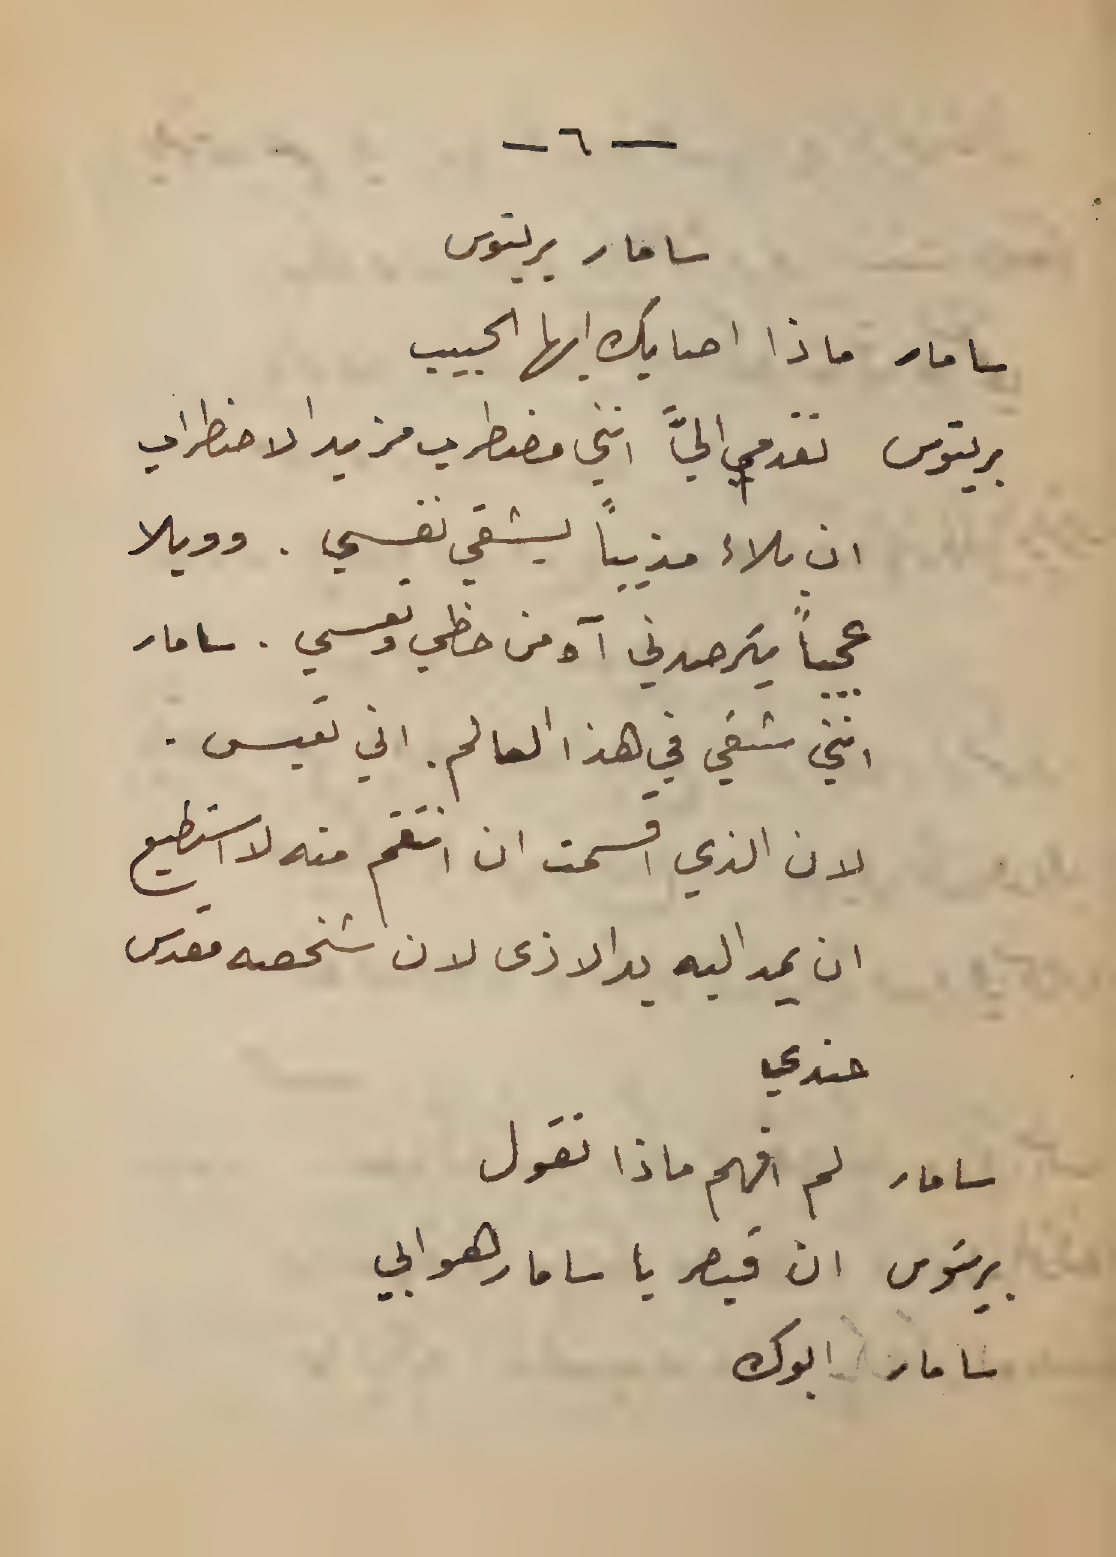 — ٦ —
سامار بريتوس
سامار ماذا اصابك ايها الحبيب
بريتوس تقدمي اليَّ انني مضطرب مزيد الاضطراب
ان بلاءً مذيباً يشقي نفسي . وويلا
عجيباً يترصدني آه من حظي وتعسي . سامار
انني شقي في هذا العالم . اني تعيس .
لان الذي اقسمت ان انتقم منه لا استطيع
ان يمد اليه يد الاذى لان شخصه مقدس
عندي
سامار لم افهم ماذا تقول
بريتوس ان قيصر يا سامار هو ابي
سامار ابوك